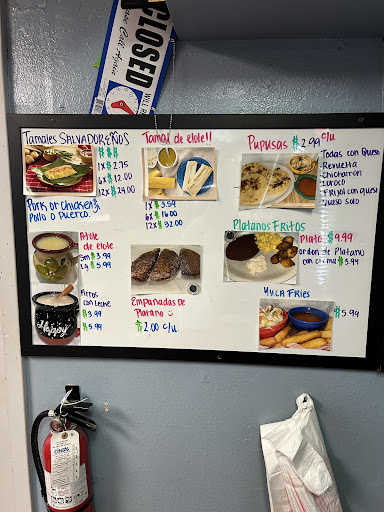 CLOSED
Please Call Again
Tamales SALVADOREÑOS
$$$
1x $2.75
6x $12.00
12x $24.00
Pork or Chicken
Pollo o Puerco.
Tamal de elote!!
1x $3.59
6x $16.00
12x $32.00
Pupusas $2.99 c/u
Todas con Queso
- Revuelta
- Chicharron
- Loroco
- Frijol con queso
- Queso Solo
Atole
de elote.
Sm $3.99
Lg $5.99
Arros
con Leche
$3.99
$5.99
Happy
Empanadas De
Platano
$2.00 c/u.
Platanos Fritos
Plato $9.99
orden de Platano
con crema $3.99
Yuca Fries
$5.99